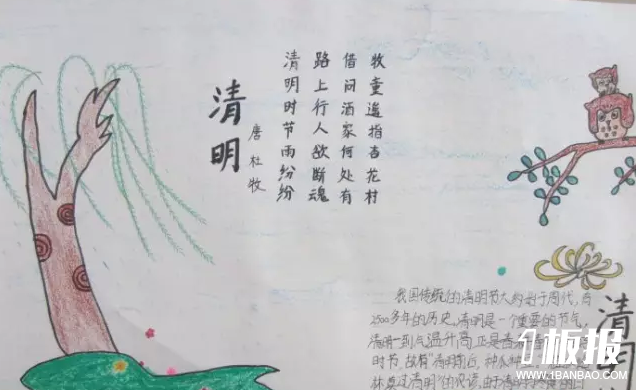 清明
唐 杜牧
清明时节雨纷纷
路上行人欲断魂
借问酒家何处有
牧童遥指杏花村
我国传统的清明节大约始于周代，有
2500多年的历史。清明是一个重要的节气，
清明一到，气温升高，正是春
时节，故有"清明前后，种瓜种
林莫过清明"的农谚
清
1板报
WWW.1BANBAO.COM